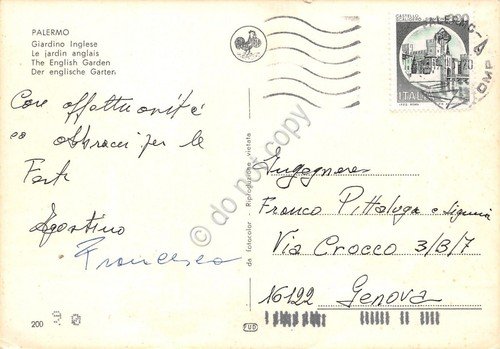 PALERMO
Giardino Inglese
Le jardin anglais
The English Garden
Der englische Garten
Care affettuosità
ed abbracci per le
Feste
Agostino
Francesco
200
da fotocolor - Riproduzione vietata
ITALIA
Ingegnere
Franco Pittaluga e Signora
Via Crocco 3/8/7
16122 Genova
do not copy